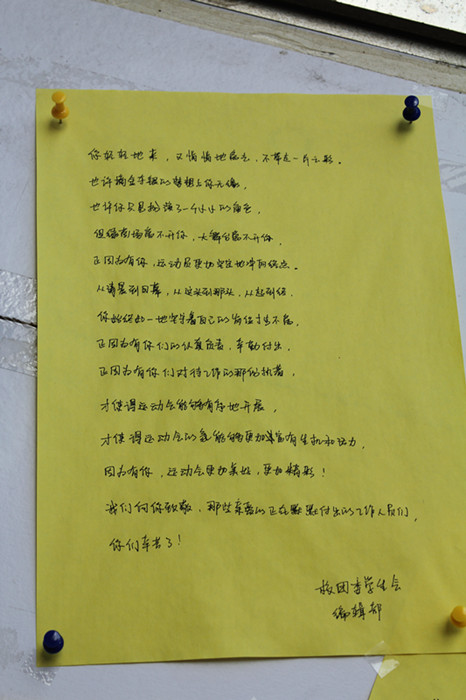 你轻轻地来，又悄悄地离去，不带走一片云彩。
也许摘金夺银的梦想与你无缘，
也许你只是扮演了一个小小的角色，
但操场离不开你，大舞台离不开你，
正因为有你，运动员更加坚定地冲向终点。
从清晨到日暮，从这头到那头，从起到终，
你始终如一地坚守着自己的岗位
正因为有你们的认真负责，辛勤付出，
正因为有你们对待工作的那份执着，
才使得运动会能够有序地开展，
才使得运动会能够更加富有生机和活力，
因为有你，运动会更加美好，更加精彩！
我们向你致敬，那些辛勤的正在默默付出的工作人员们，
你们辛苦了！
校团委学生会
编辑部